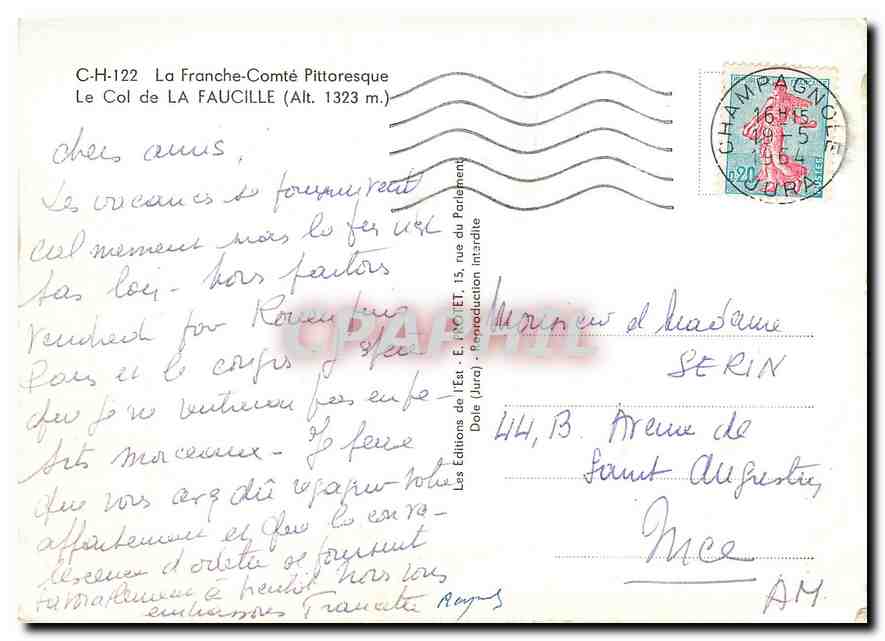 C-H-122 La Franche-Comté Pittoresque
Le Col de LA FAUCILLE (Alt. 1323 m.)
CHAMPAGNOLE
16H15
19-5
1964
JURA
0,20
POSTES
chers amis,
Les vacances se poursuivent
calmement mais la fin n'est
pas loin - Nous partons
vendredi pour Rouen puis
Paris et le congrès J'espère
que je ne rentrerai pas en pe-
tits morceaux - Je pense
que vous avez dû regagner votre
appartement et que la conva-
lescence d'odette se poursuit
favorablement à bientôt Nous vous
embrassons Francette
Les Editions de l'Est - E. PROTET, 15, rue du Parlement
Dole (Jura) - Reproduction Interdite
CPAPHIL
Monsieur et Madame
SERIN
44, B. Avenue de
Saint Augustin
Nice
AM